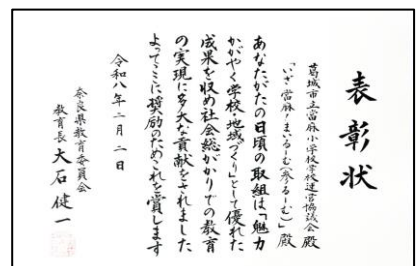 表彰状
葛城市立當麻小学校学校運営協議会 殿
「いざ當麻!まいるーむ(参るーむ)」殿
あなたがたの日頃の取組は「魅力
かがやく学校・地域づくり」として優れた
成果を収め社会総がかりでの教育
の実現に多大な貢献をされました
よってここに奨励のためこれを賞します
令和八年二月二日
奈良県教育委員会
教育長 大石健一